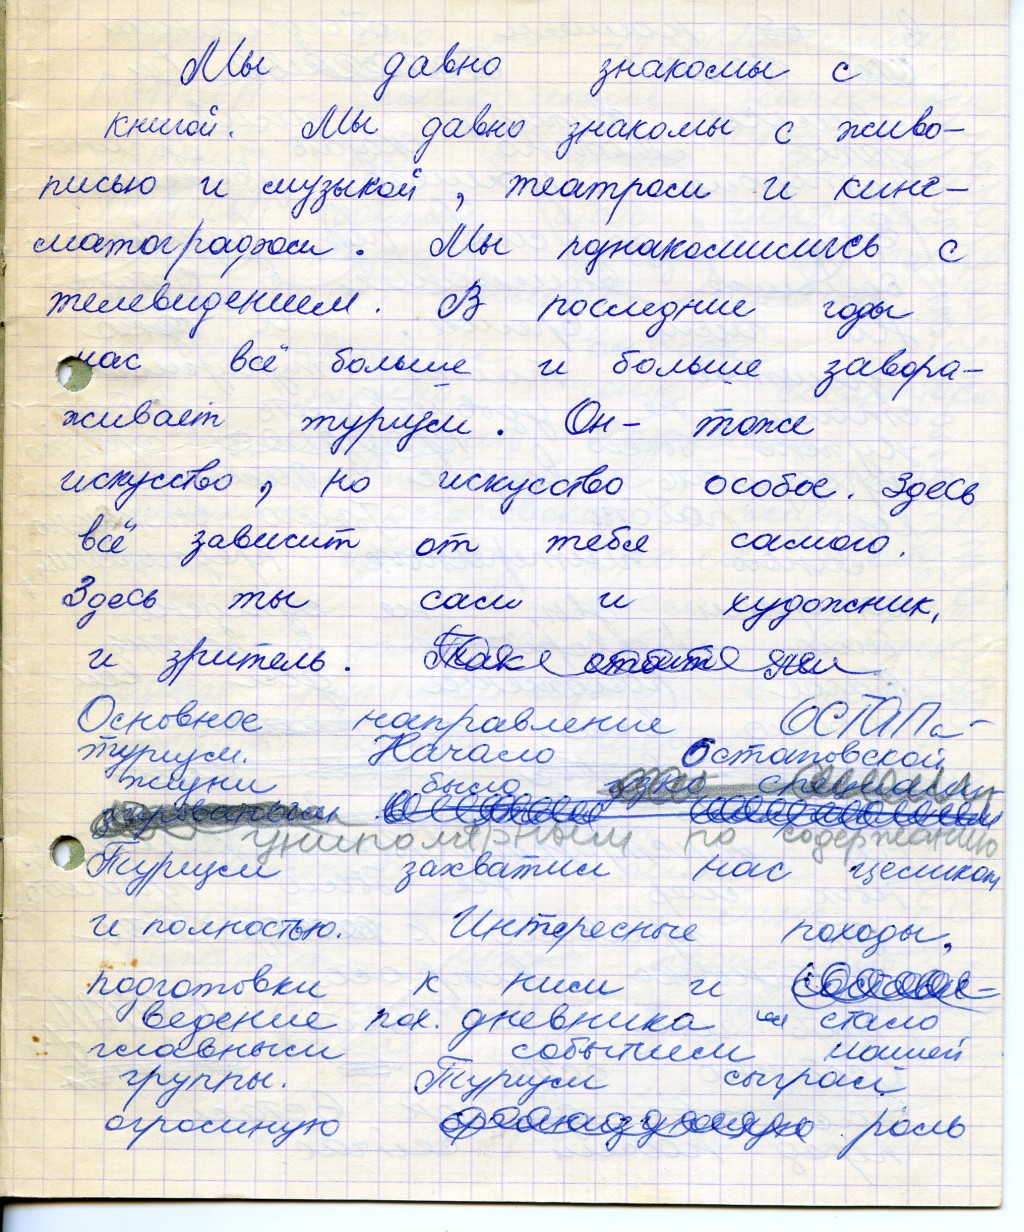 Мы давно знакомы с
книгой. Мы давно знакомы с живо-
писью и музыкой, театром и кине-
матографом. Мы познакомились с
телевидением. В последние годы
нас всё больше и больше завора-
живает туризм. Он- тоже
искусство, но искусство особое. Здесь
всё зависит от тебя самого.
Здесь ты сам и художник,
и зритель.
Основное направление ОСТАПа-
туризм. Начало Остаповской
жизни было
унипомерным по содержанию
Туризм захватил нас целиком
и полностью. Интересные походы,
подготовки к ним и
ведение пох. дневника стало
главным событием нашей
группы. Туризм сыграл
огромную роль